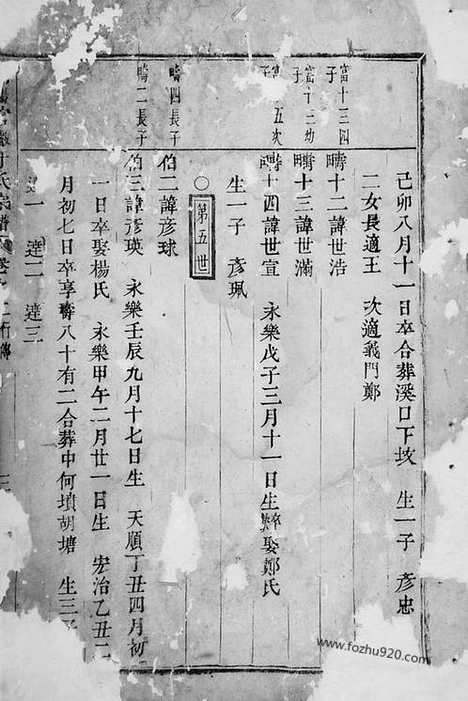 己卯八月十一日卒合葬溪口下坟 生一子 彥忠
二女長適王 次適義門鄭
富十三四子
疇十二諱世浩
富十三幼子
疇十三諱世滿
五次子
疇十四諱世宣 永樂戊子三月十一日生 娶鄭氏
生一子 彥珮
○第五世
疇四長子
伯二諱彥球
疇二長子
伯三諱彥瑛 永樂壬辰九月十七日生 天順丁丑四月初
一日卒娶楊氏 永樂甲午二月廿一日生 宏治乙丑二
月初七日卒享壽八十有二合葬中何墳胡塘 生三子
一 達二 達三
氏宗譜 卷
www.fozhu920.com